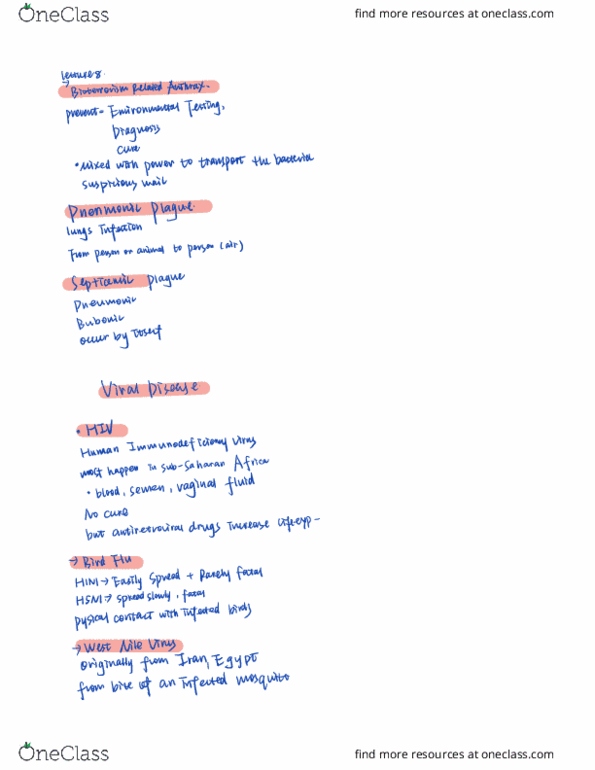 OneClass
find more resources at oneclass.com
lecture 8.
→ Bioterrorism Related Anthrax.
prevent = Environmental Testing,
Diagnosis
cure
• mixed with power to transport the bacteria
suspicious mail
Pneumonic plague.
lungs Infection
From person or animal to person (air)
Septicemic plague
Pneumonic
Bubonic
occur by
Viral Disease
• HIV
Human Immunodeficiency Virus
most happen in sub-Saharan Africa
• blood, semen, vaginal fluid
No cure
but antiretroviral drugs increase lifeexp-
→ Bird Flu
H1N1 → Easily Spread + Rarely fatal
H5N1 → spread slowly, fatal
pysical contact with infected birds
→ West Nile Virus
originally from Iran, Egypt
from bite of an infected mosquito
OneClass
find more resources at oneclass.com